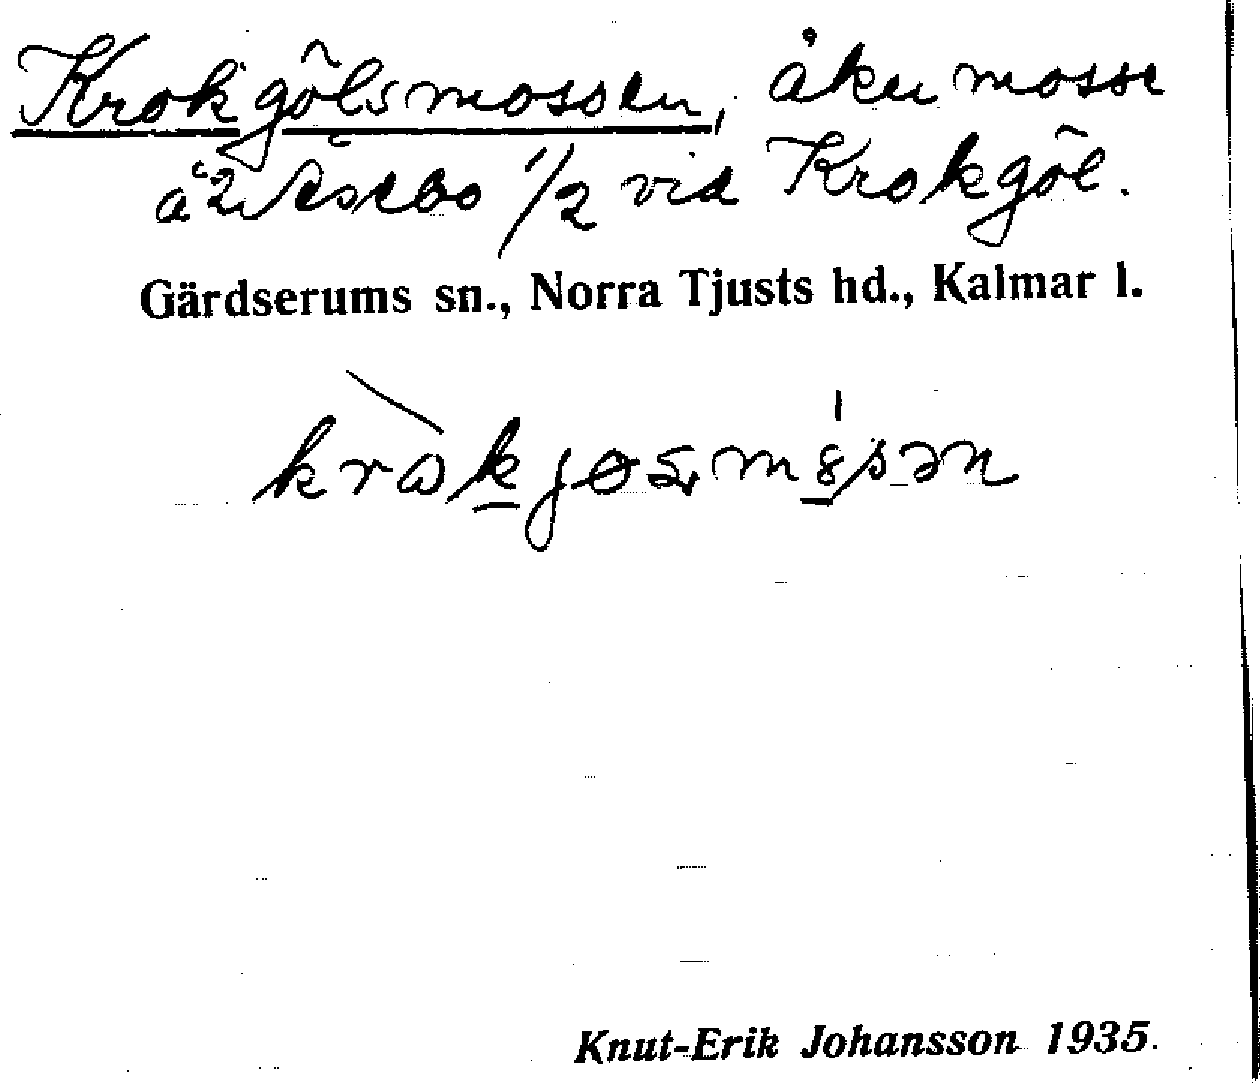 Krokgölsmossen, åker mosse
å Åsebo 1/2 vid Krokgöl.
Gärdserums sn., Norra Tjusts hd., Kalmar l.
Knut-Erik Johansson 1935.